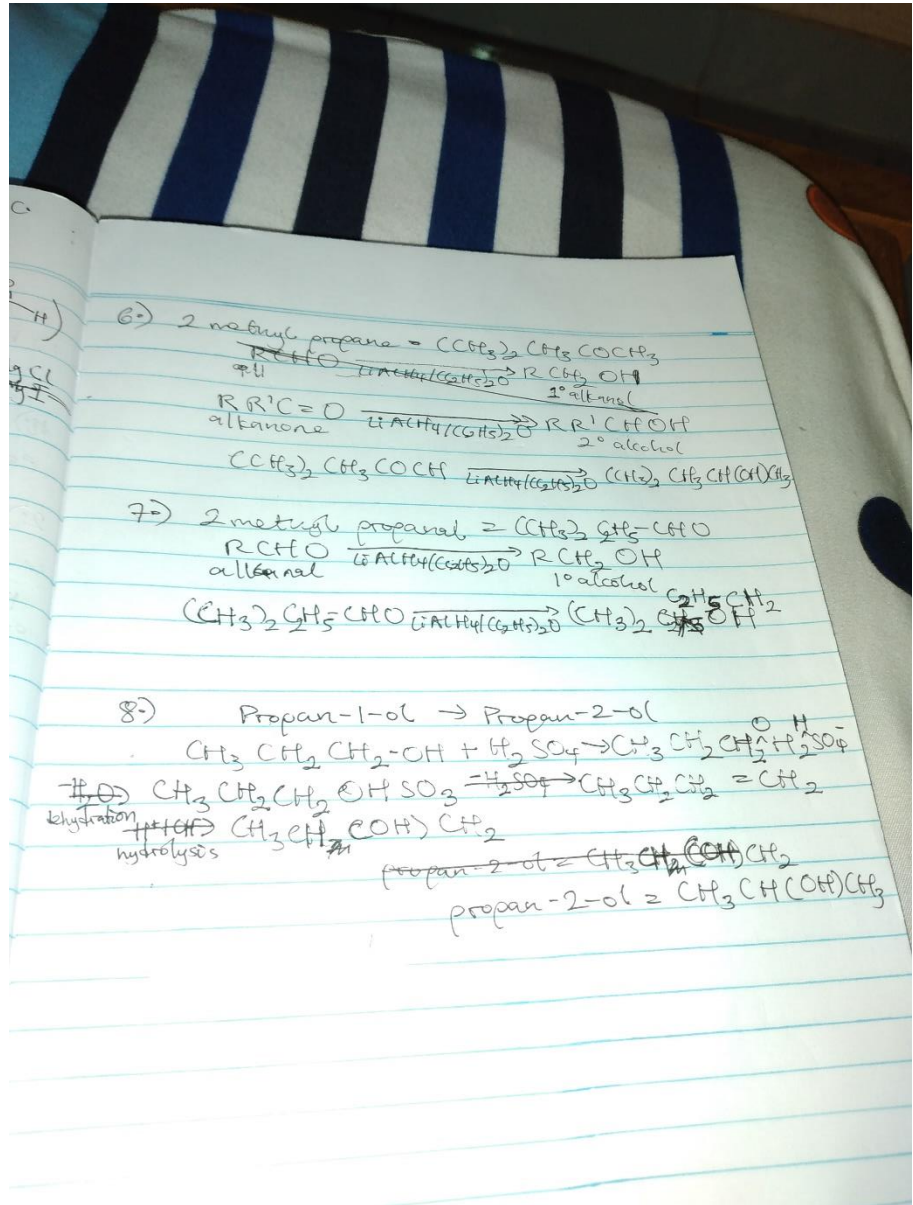 C.
H)
gCl
gI
6.) 2 methyl propane = (CH3)2 CH3 COCH3
RCHO LiAlH4/(C2H5)2O R CH2 OH
1° alkanol
R R'C = O LiAlH4/(C2H5)2O R R'CHOH
alkanone 2° alcohol
(CH3)2 CH3 COCH LiAlH4/(C2H5)2O (CH3)2 CH3 CH(OH)CH3
7.) 2 methyl propanal = (CH3)2 C2H5-CHO
RCHO LiAlH4/(C2H5)2O R CH2 OH
alkanal 1° alcohol
(CH3)2 C2H5-CHO LiAlH4/(C2H5)2O (CH3)2 C2H5 CH2 OH
8.) Propan-1-ol → Propan-2-ol
CH3 CH2 CH2-OH + H2SO4 → CH3 CH2 CH2 O H H2SO4-
-H2O→ CH3 CH2CH2 OH SO3 -H2SO4→ CH3CH2CH2 = CH2
dehydration H+/OH→ CH3CH2 (OH) CH2
hydrolysis
propan-2-ol = CH3CH2(OH)CH2
propan-2-ol = CH3 CH(OH)CH3